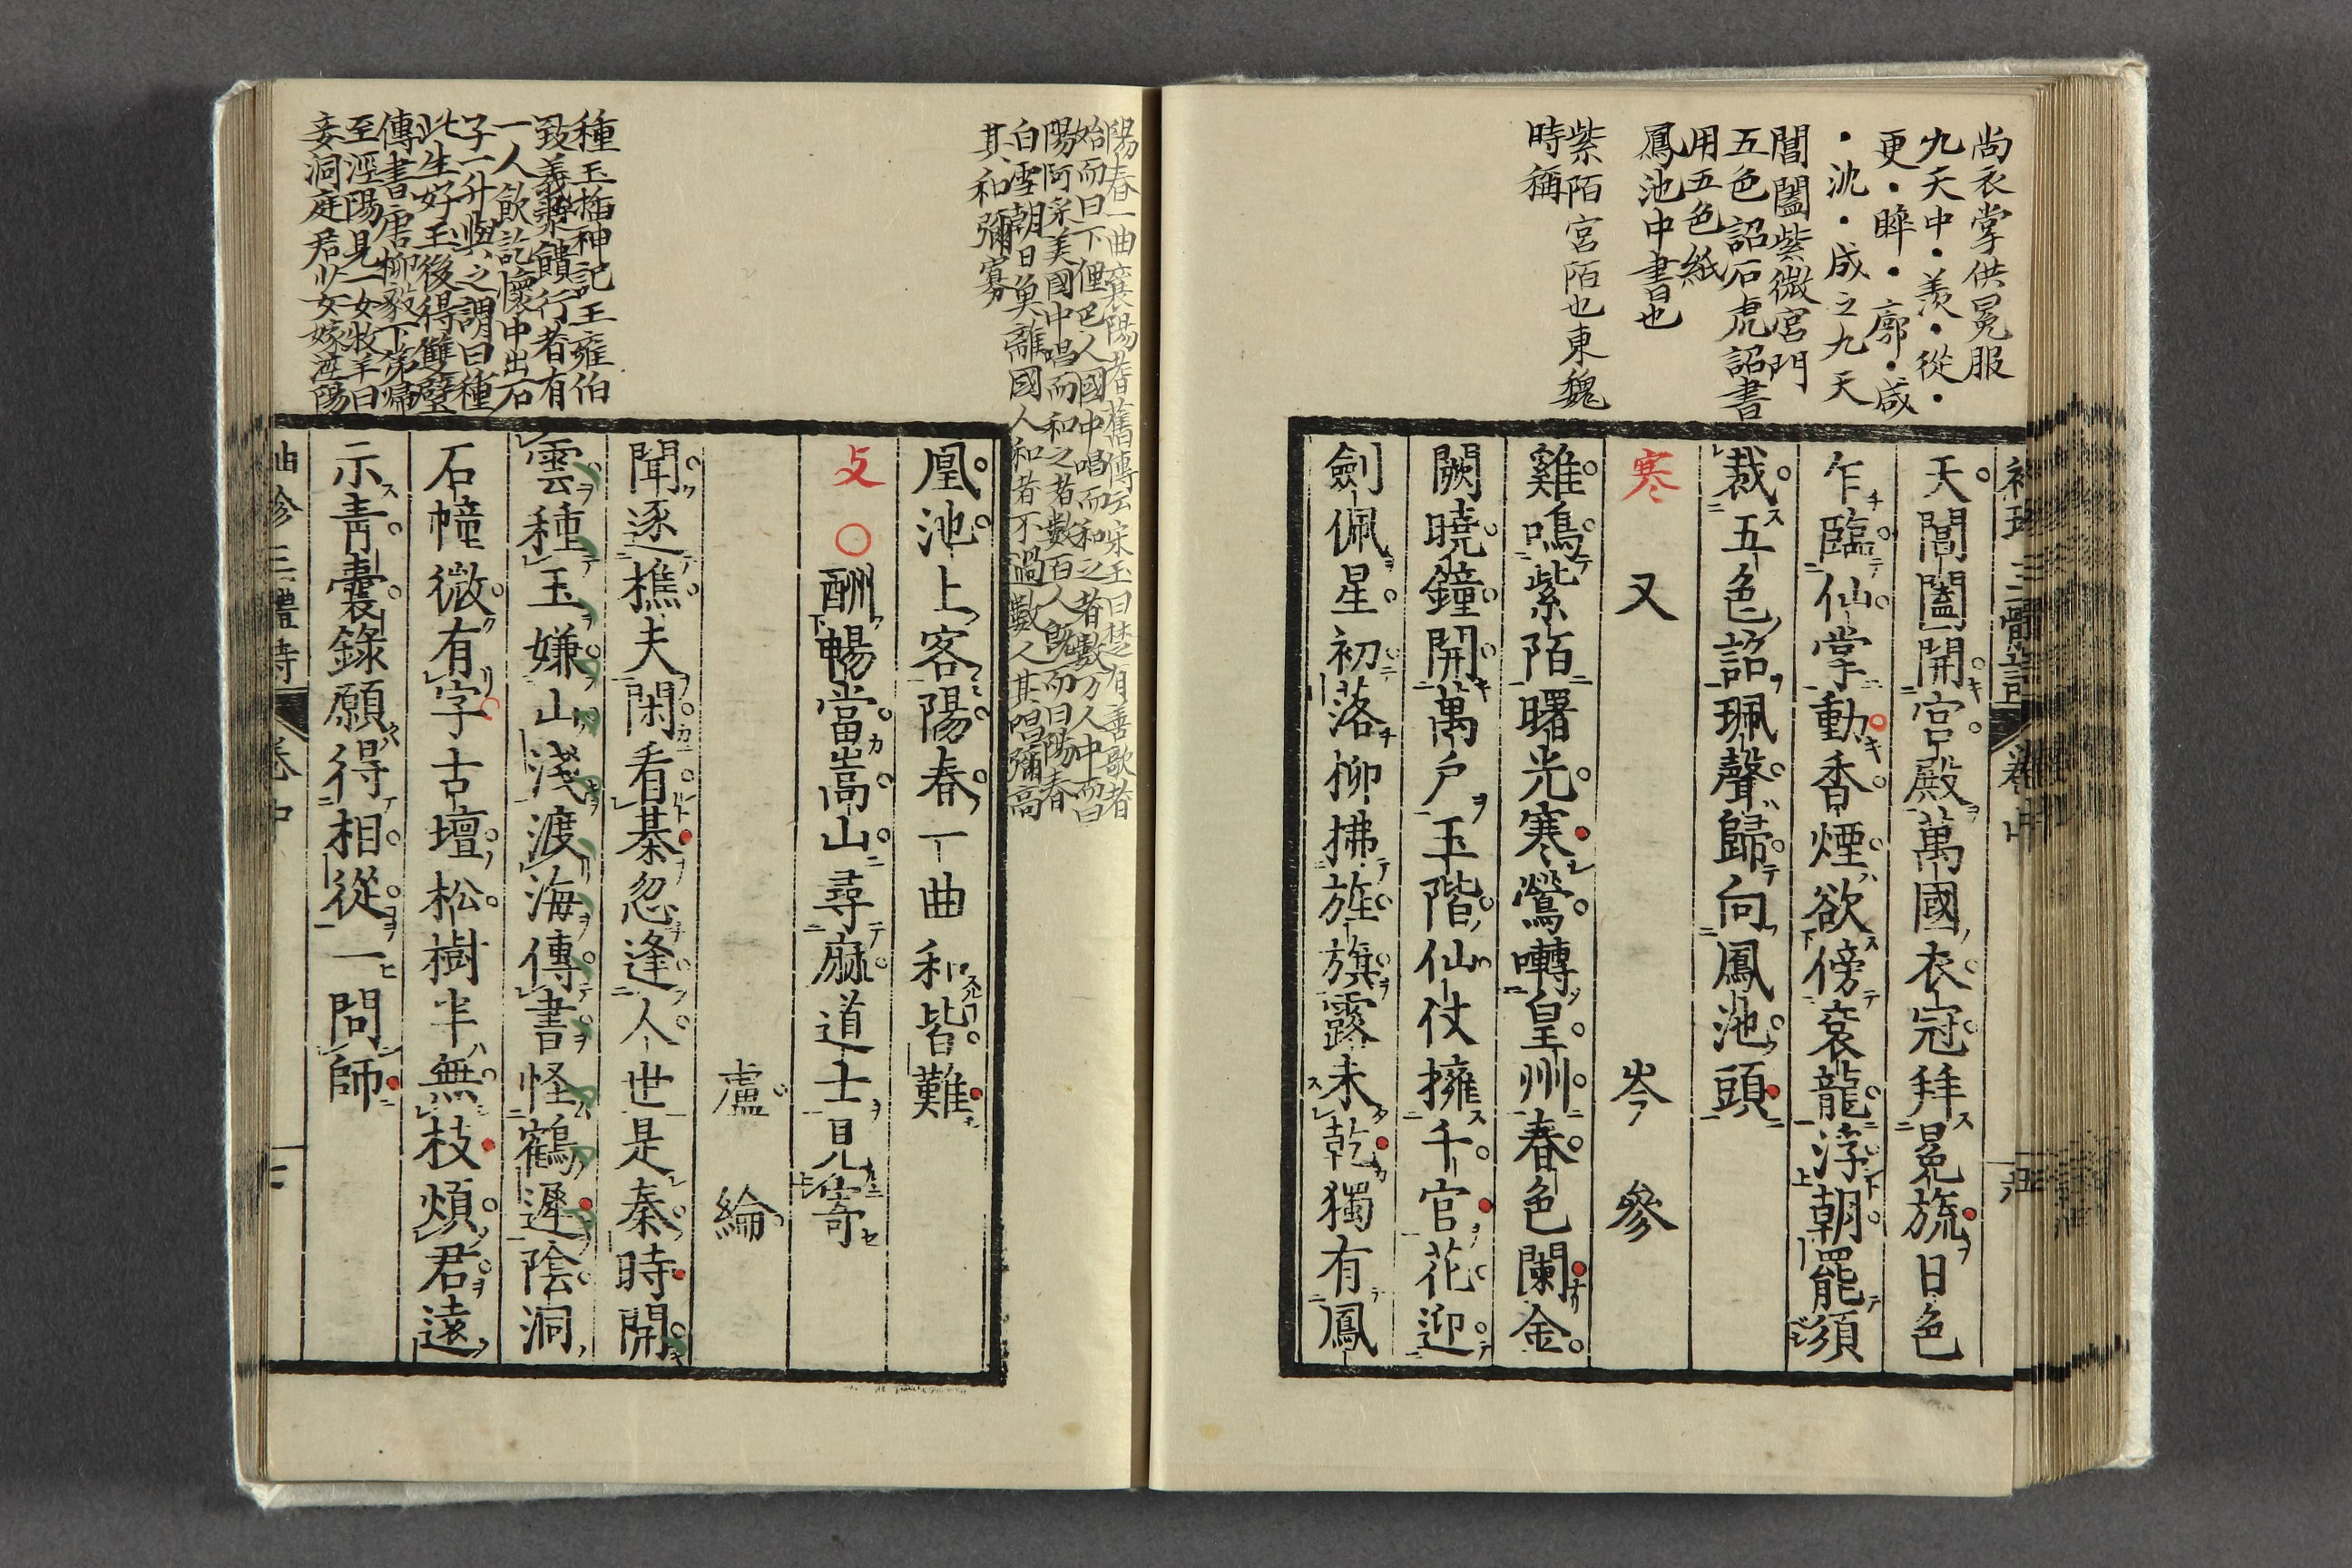 尚衣掌供冕服
九天中・羨・從・
更・睟・廓・咸
・沈・成之九天
閶闔紫微宮門
五色詔石虎詔書
用五色紙
鳳池中書也
紫陌宮陌也東魏
時稱
天閶闔開宮殿萬國衣冠拜冕旒日色
乍臨仙掌動香煙欲傍袞龍浮朝罷須
裁五色詔珮聲歸向鳳池頭
寒 又 岑參
雞鳴紫陌曙光寒鶯囀皇州春色闌金
闕曉鐘開萬戶玉階仙仗擁千官花迎
劍佩星初落柳拂旌旗露未乾獨有鳳
陽春一曲襄陽耆舊傳云宋玉曰楚有善歌者
始而曰下俚巴人國中唱而和之者數万人中而曰
陽阿采美國中唱而和之者數百人既而曰陽春
白雪朝日魚離國人和者不過數人其唱彌高
其和彌寡
凰池上客陽春一曲和皆難
支 酬暢當嵩山尋麻道士見寄
盧綸
聞逐樵夫閑看棊忽逢人世是秦時開
雲種玉嫌山淺渡海傳書怪鶴遲陰洞
石幢微有字古壇松樹半無枝煩君遠
示青囊錄願得相從一問師
種玉搜神記王雍伯
致義漿饋行者有
一人飲訖懷中出石
子一升與之謂曰種
此生好玉後得雙璧
傳書唐柳毅下第歸
至涇陽見一女牧羊曰
妾洞庭君少女嫁涇陽
袖珍三體詩 卷中